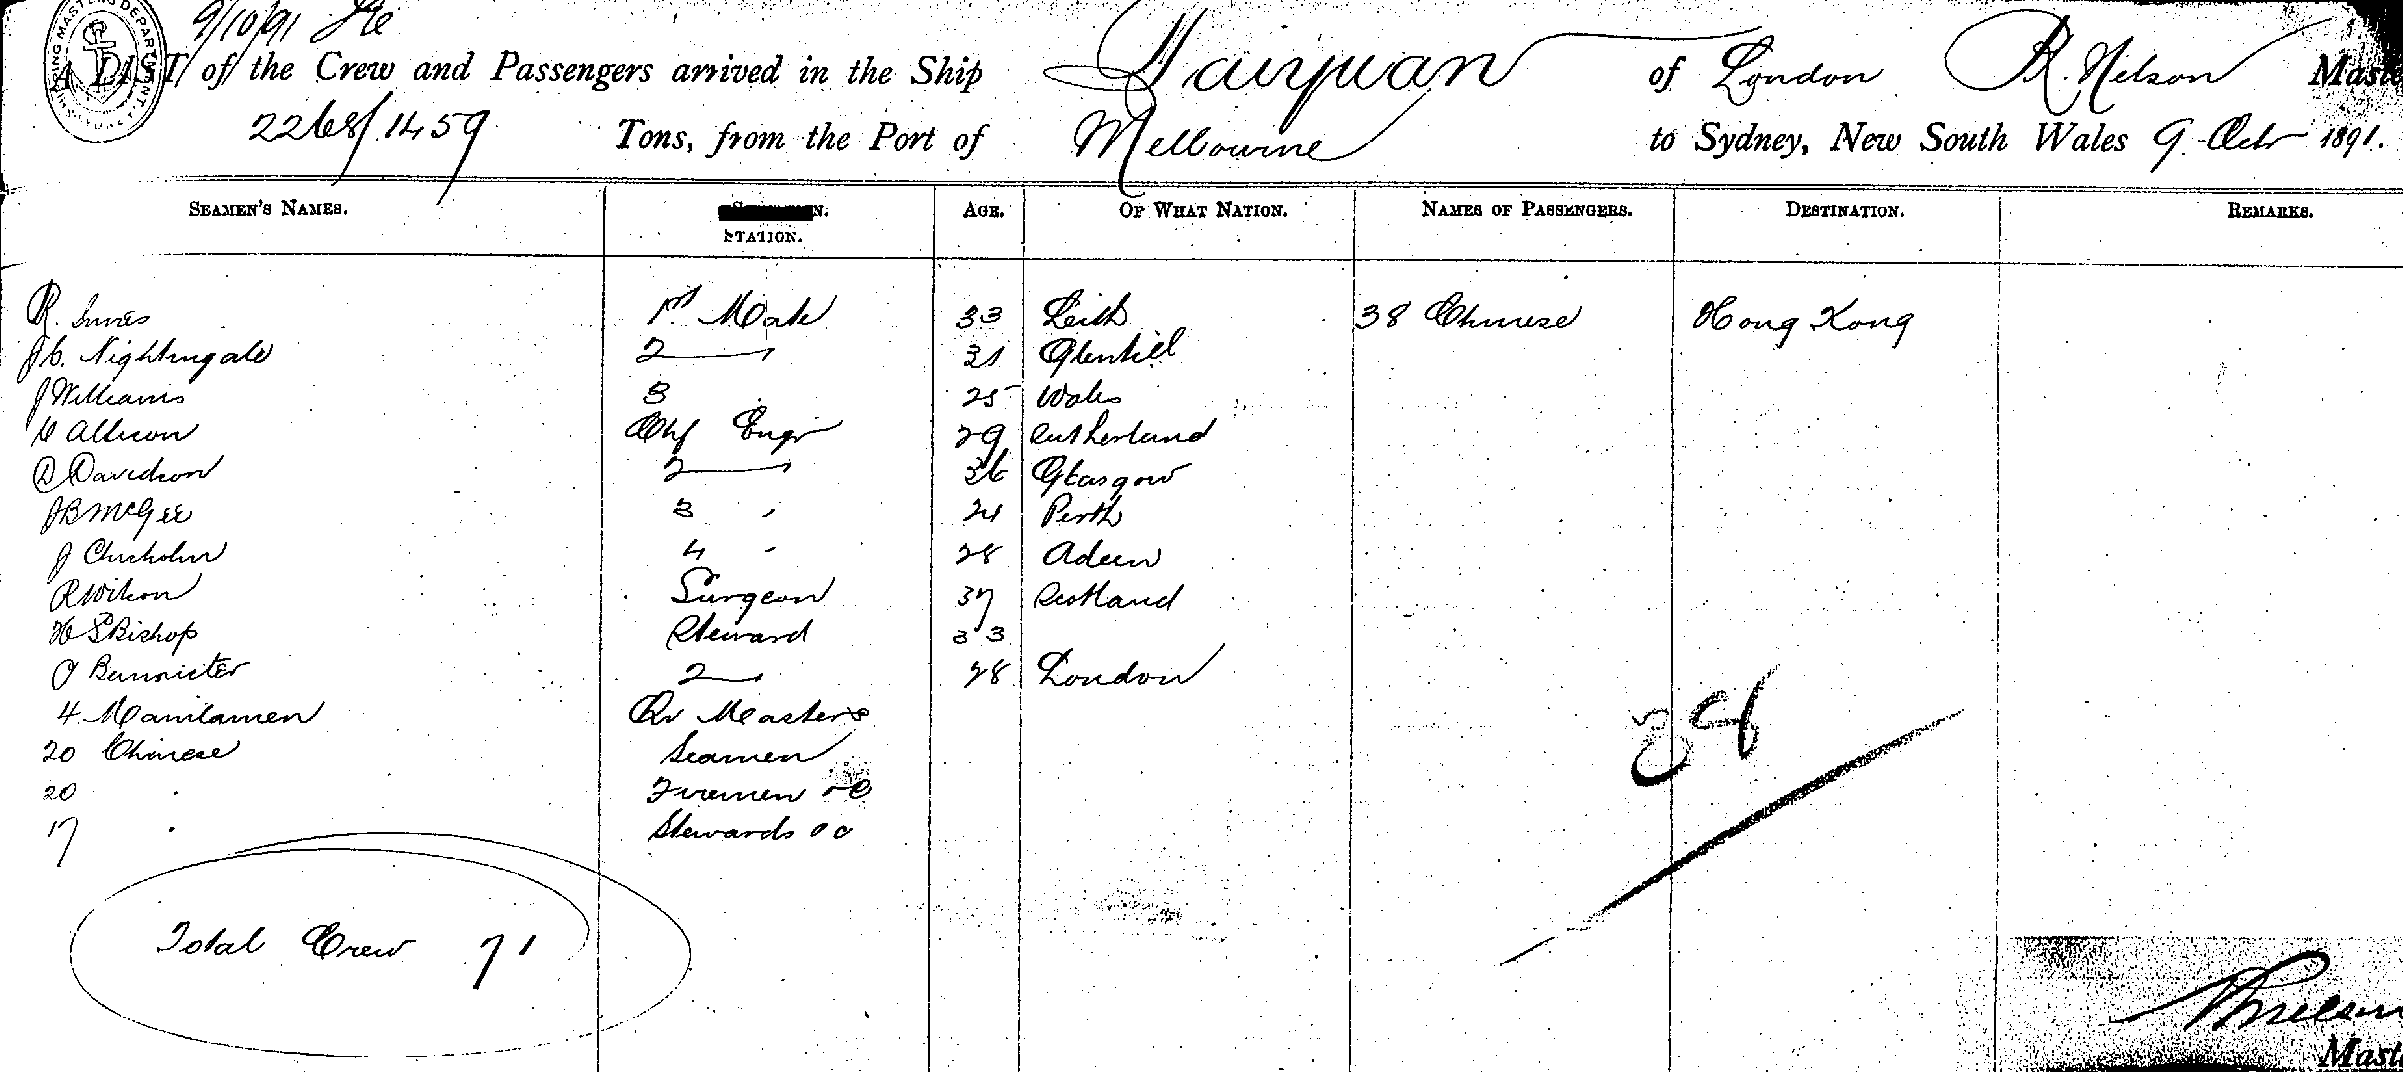 9/10/91
A LIST of the Crew and Passengers arrived in the Ship Taiyuan of London R. Nelson Master
2268/1459 Tons, from the Port of Melbourne to Sydney, New South Wales 9 Octr 1891.
SEAMEN'S NAMES. STATION. AGE. OF WHAT NATION. NAMES OF PASSENGERS. DESTINATION. REMARKS.
R. Innes 1st Mate 33 Leith 38 Chinese Hong Kong
Nightingale 2 31
J Williams 3 25 Wales
Allison Chf Engr 29 Sutherland
D Davidson 2 36 Glasgow
J B McGee 3 24 Perth
J Chisholm 4 28
R Wilson Surgeon 37 Scotland
H S Bishop Steward 33
Bannister 2 28 London
4 Manilamen Qr Masters
20 Chinese Seamen
20 Firemen
17 Stewards
38
Total Crew 71